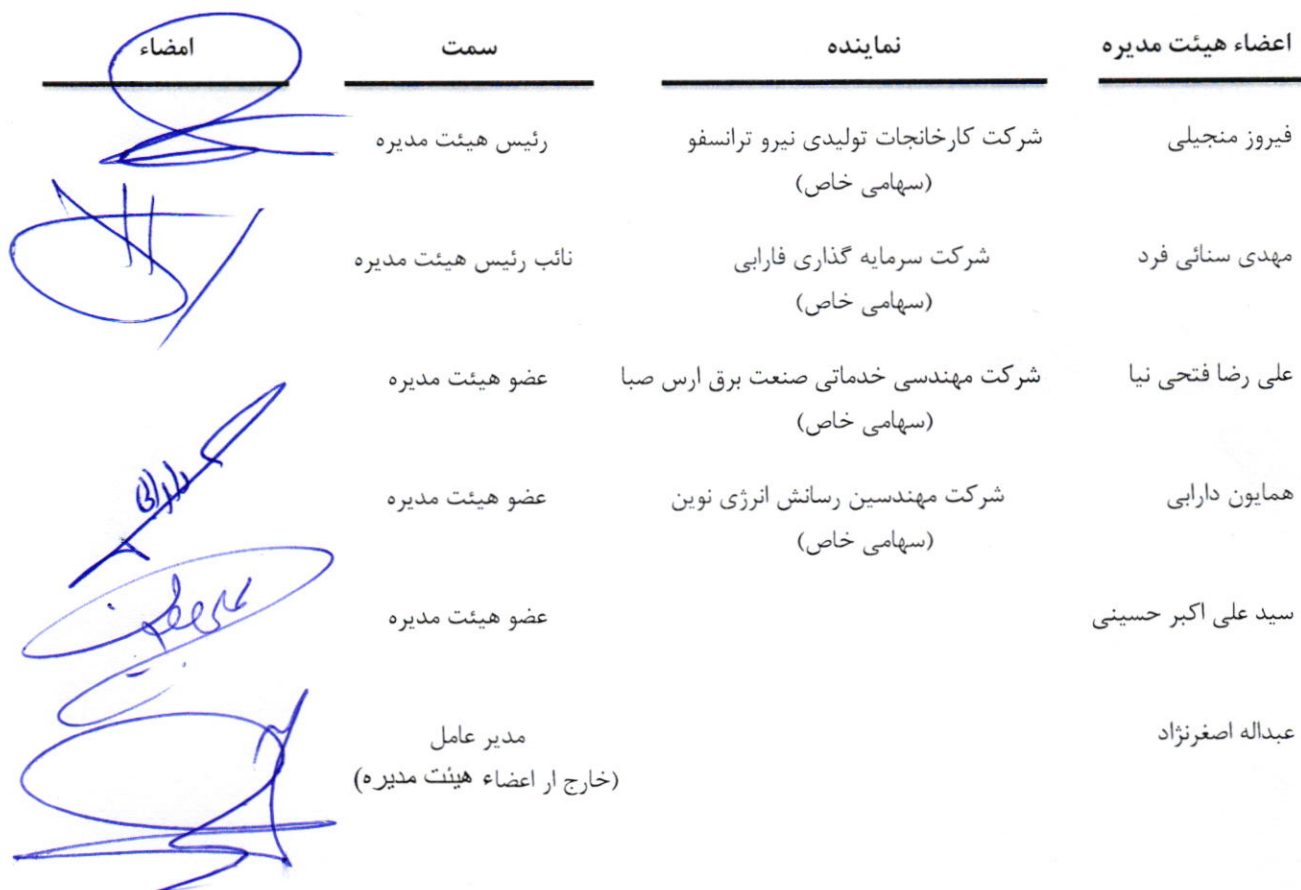 اعضاء هیئت مدیره نماینده سمت امضاء
فیروز منجیلی شرکت کارخانجات تولیدی نیرو ترانسفو رئیس هیئت مدیره
(سهامی خاص)
مهدی سنائی فرد شرکت سرمایه گذاری فارابی نائب رئیس هیئت مدیره
(سهامی خاص)
علی رضا فتحی نیا شرکت مهندسی خدماتی صنعت برق ارس صبا عضو هیئت مدیره
(سهامی خاص)
همایون دارابی شرکت مهندسین رسانش انرژی نوین عضو هیئت مدیره
(سهامی خاص)
سید علی اکبر حسینی عضو هیئت مدیره
عبداله اصغرنژاد مدیر عامل
(خارج ار اعضاء هیئت مدیره)